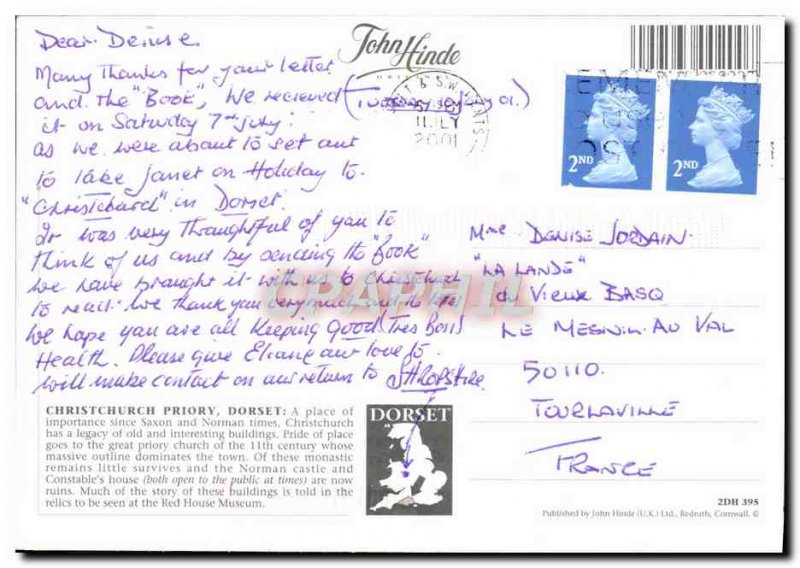 Dear Denise
John Hinde
Many Thanks for your letter
and the "Book", We recieved (Tuesday 10 July 01.)
it on Saturday 7th July.
as we were about to set out
to take Janet on Holiday to.
"Christchurch" in Dorset.
It was very Thoughtful of you to
think of us and by sending the "Book"
we have brought it with us to Christchurch
to read. We thank you very much and
We hope you are all Keeping Good. Tres Bon
Health. Please give Eliane our love to.
will make contact on our return to SHROPSHIRE
& S.W.
11 JLY
2001
2ND
2ND
Mme DENISE JORDAIN.
"LA LANDE"
du VIEUX BASQ
LE MESNIL AU VAL
50110.
TOURLAVILLE
FRANCE
CPAPHIL
CHRISTCHURCH PRIORY, DORSET: A place of
importance since Saxon and Norman times, Christchurch
has a legacy of old and interesting buildings. Pride of place
goes to the great priory church of the 11th century whose
massive outline dominates the town. Of these monastic
remains little survives and the Norman castle and
Constable's house (both open to the public at times) are now
ruins. Much of the story of these buildings is told in the
relics to be seen at the Red House Museum.
DORSET
2DH 395
Published by John Hinde (U.K.) Ltd., Redruth, Cornwall. ©